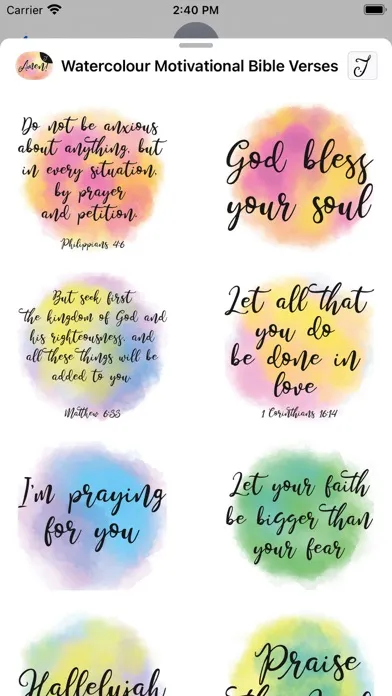 Carrier 2:40 PM
Amen!
Watercolour Motivational Bible Verses
J
Do not be anxious
about anything, but
in every situation,
by prayer
and petition.
Philippians 4:6
God bless
your soul
But seek first
the kingdom of God and
his righteousness, and
all these things will be
added to you
Matthew 6:33
Let all that
you do
be done in
love
1 Corinthians 16:14
I'm praying
for you
Let your faith
be bigger than
your fear
Hallelujah
Praise